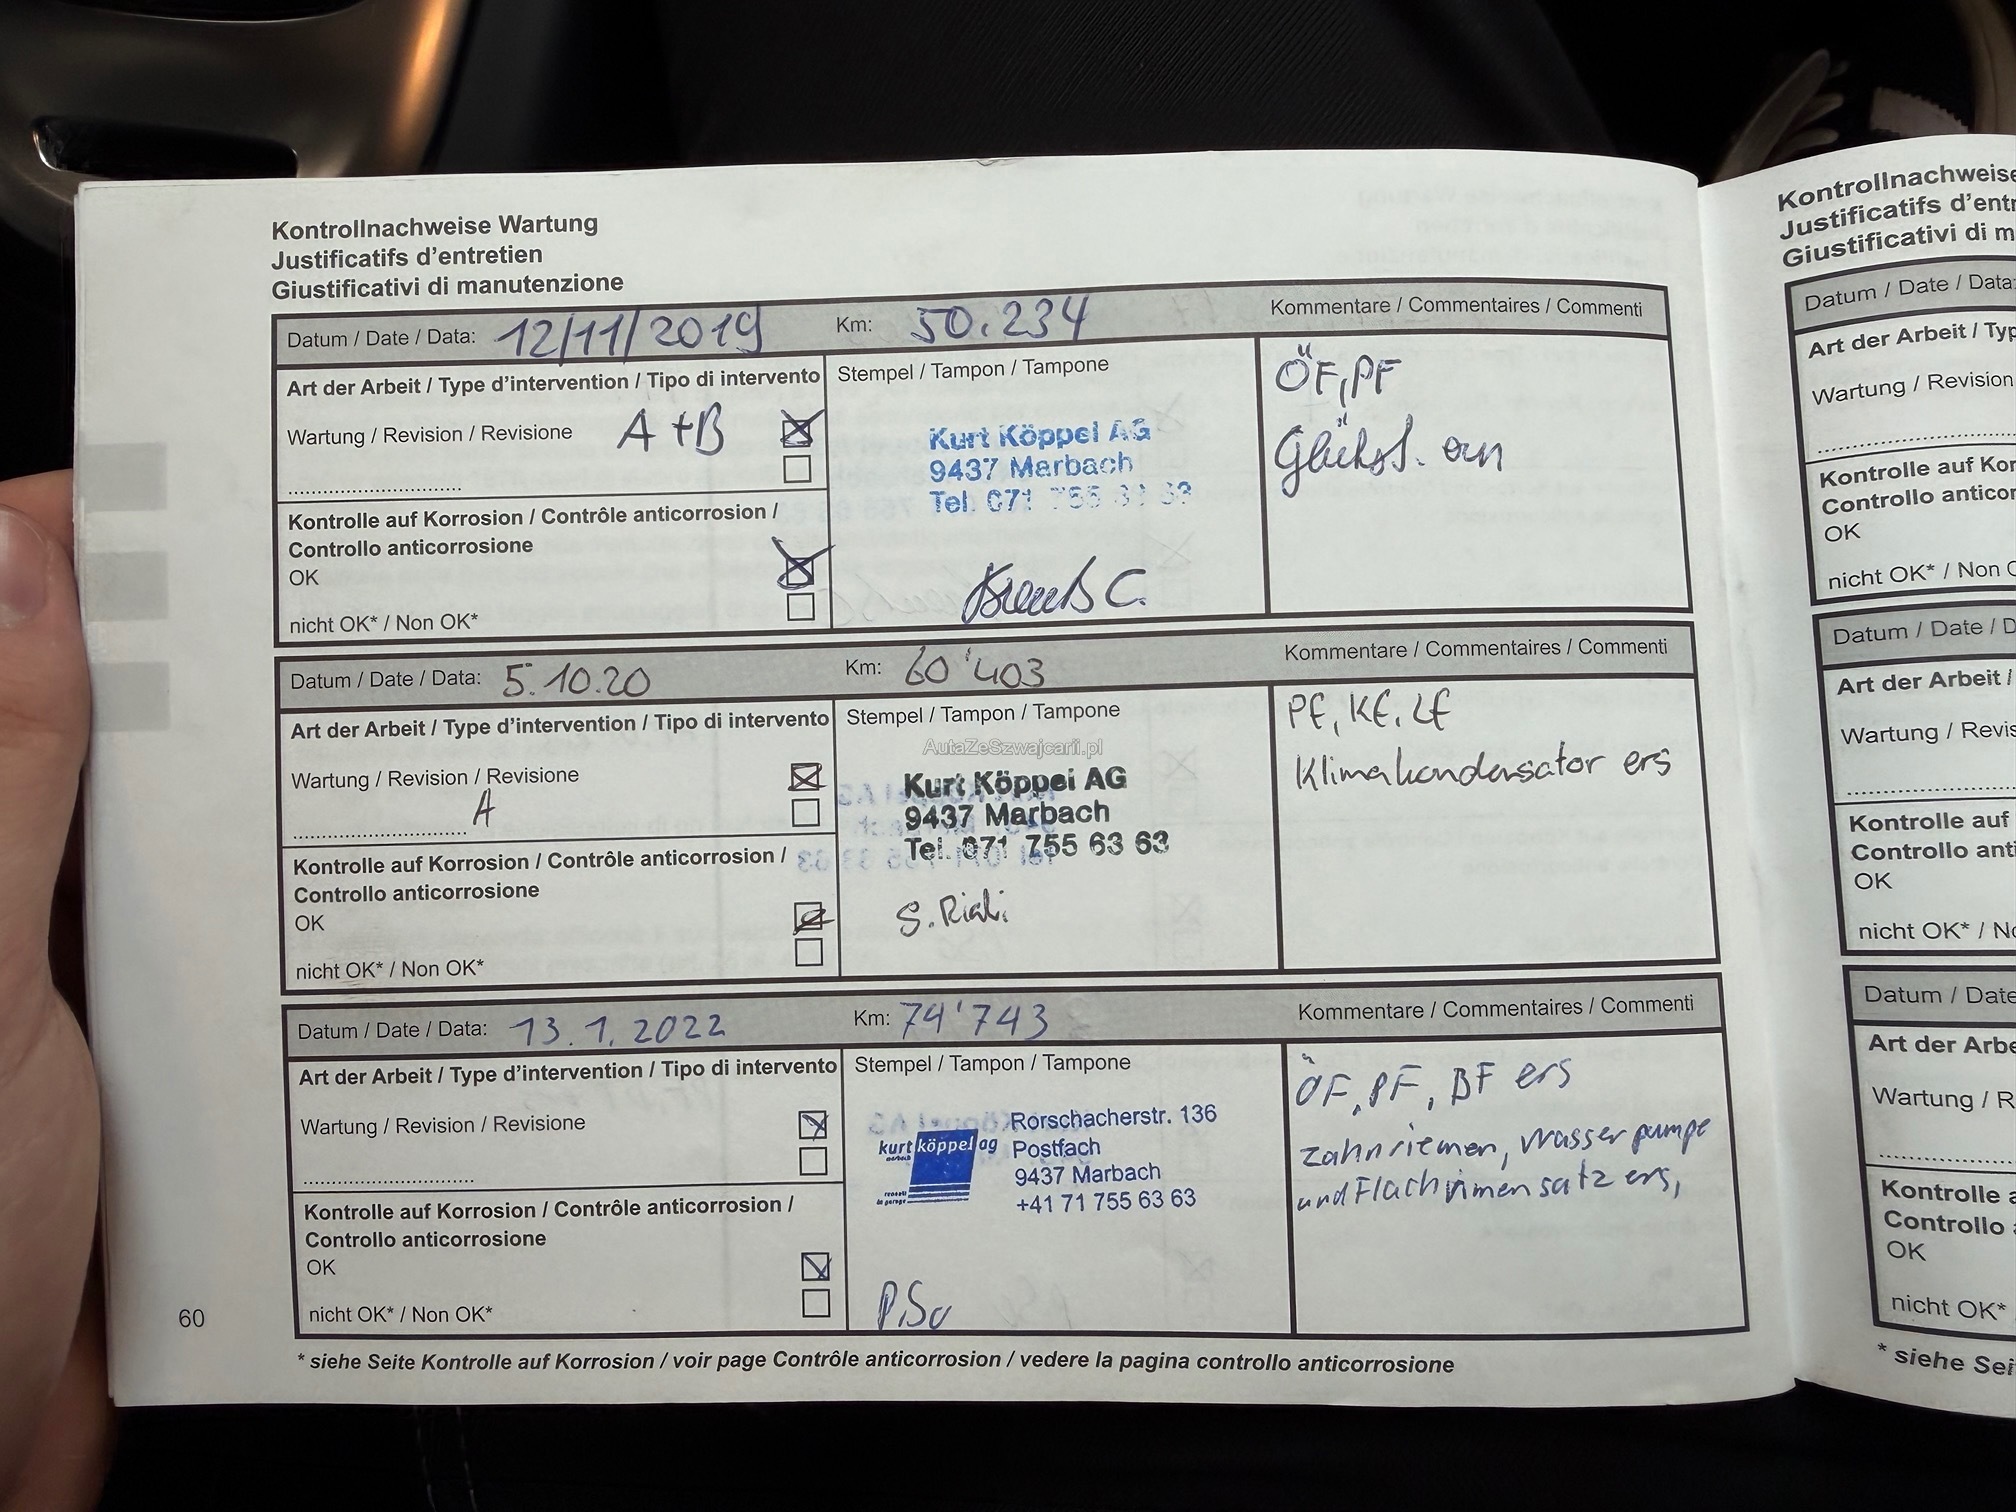 Kontrollnachweise Wartung
Justificatifs d'entretien
Giustificativi di manutenzione
Datum / Date / Data: 12/11/2019 Km: 50.234 Kommentare / Commentaires / Commenti
Art der Arbeit / Type d'intervention / Tipo di intervento
Stempel / Tampon / Tampone
ÖF, PF
Wartung / Revision / Revisione A+B
Kurt Köppel AG
9437 Marbach
Tel. 071 755 63
Kontrolle auf Korrosion / Contrôle anticorrosion /
Controllo anticorrosione
OK
nicht OK* / Non OK*
Datum / Date / Data: 5.10.20 Km: 60'403 Kommentare / Commentaires / Commenti
Art der Arbeit / Type d'intervention / Tipo di intervento
Stempel / Tampon / Tampone
PF, KF, LF
Klimakondensator ers
AutaZeSzwajcarii.pl
Wartung / Revision / Revisione
A
Kurt Köppel AG
9437 Marbach
Tel. 071 755 63 63
Kontrolle auf Korrosion / Contrôle anticorrosion /
Controllo anticorrosione
OK
nicht OK* / Non OK*
Datum / Date / Data: 13.1.2022 Km: 74'743 Kommentare / Commentaires / Commenti
Art der Arbeit / Type d'intervention / Tipo di intervento
Stempel / Tampon / Tampone
ÖF, PF, BF ers
Zahnriemen, Wasserpumpe
und Flachrimensatz ers,
Wartung / Revision / Revisione
kurt köppel ag
Rorschacherstr. 136
Postfach
9437 Marbach
+41 71 755 63 63
Kontrolle auf Korrosion / Contrôle anticorrosion /
Controllo anticorrosione
OK
nicht OK* / Non OK*
60
* siehe Seite Kontrolle auf Korrosion / voir page Contrôle anticorrosion / vedere la pagina controllo anticorrosione
Kontrollnachweise
Justificatifs d'entr
Giustificativi di m
Datum / Date / Data:
Art der Arbeit / Typ
Wartung / Revision
Kontrolle auf Kor
Controllo anticor
OK
nicht OK* / Non O
Datum / Date / D
Art der Arbeit /
Wartung / Revis
Kontrolle auf
Controllo anti
OK
nicht OK* / No
Datum / Date
Art der Arbe
Wartung / R
Kontrolle a
Controllo
OK
nicht OK*
* siehe Sei